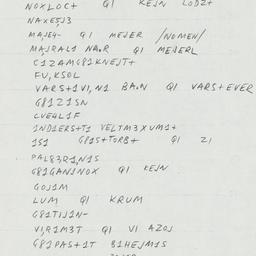 NOXLOC+ QI KEJN LODZ+
NAXE5J3
MAJE4- QI MEJER /NOMEN/
MAJRAL1 NA.R QI MEJERL
C1ZAMG81KNEJT+
FU,K5OL
VARS+1VI,N1 BA.N QI VARS+EVER
G81Z1SN
CVE4L1F
1ND1ERS+T1 VELTM3XUM1+
1S1 G81S+TORB+ QI Z1
PAL83R1,N1S
G81GANJNOX QI KEJN
GOJ1M
LUM QI KRUM
G81TIJ1N-
V1,R1M3T QI VI AZOJ
G81PAS+1T B1HEJM1S